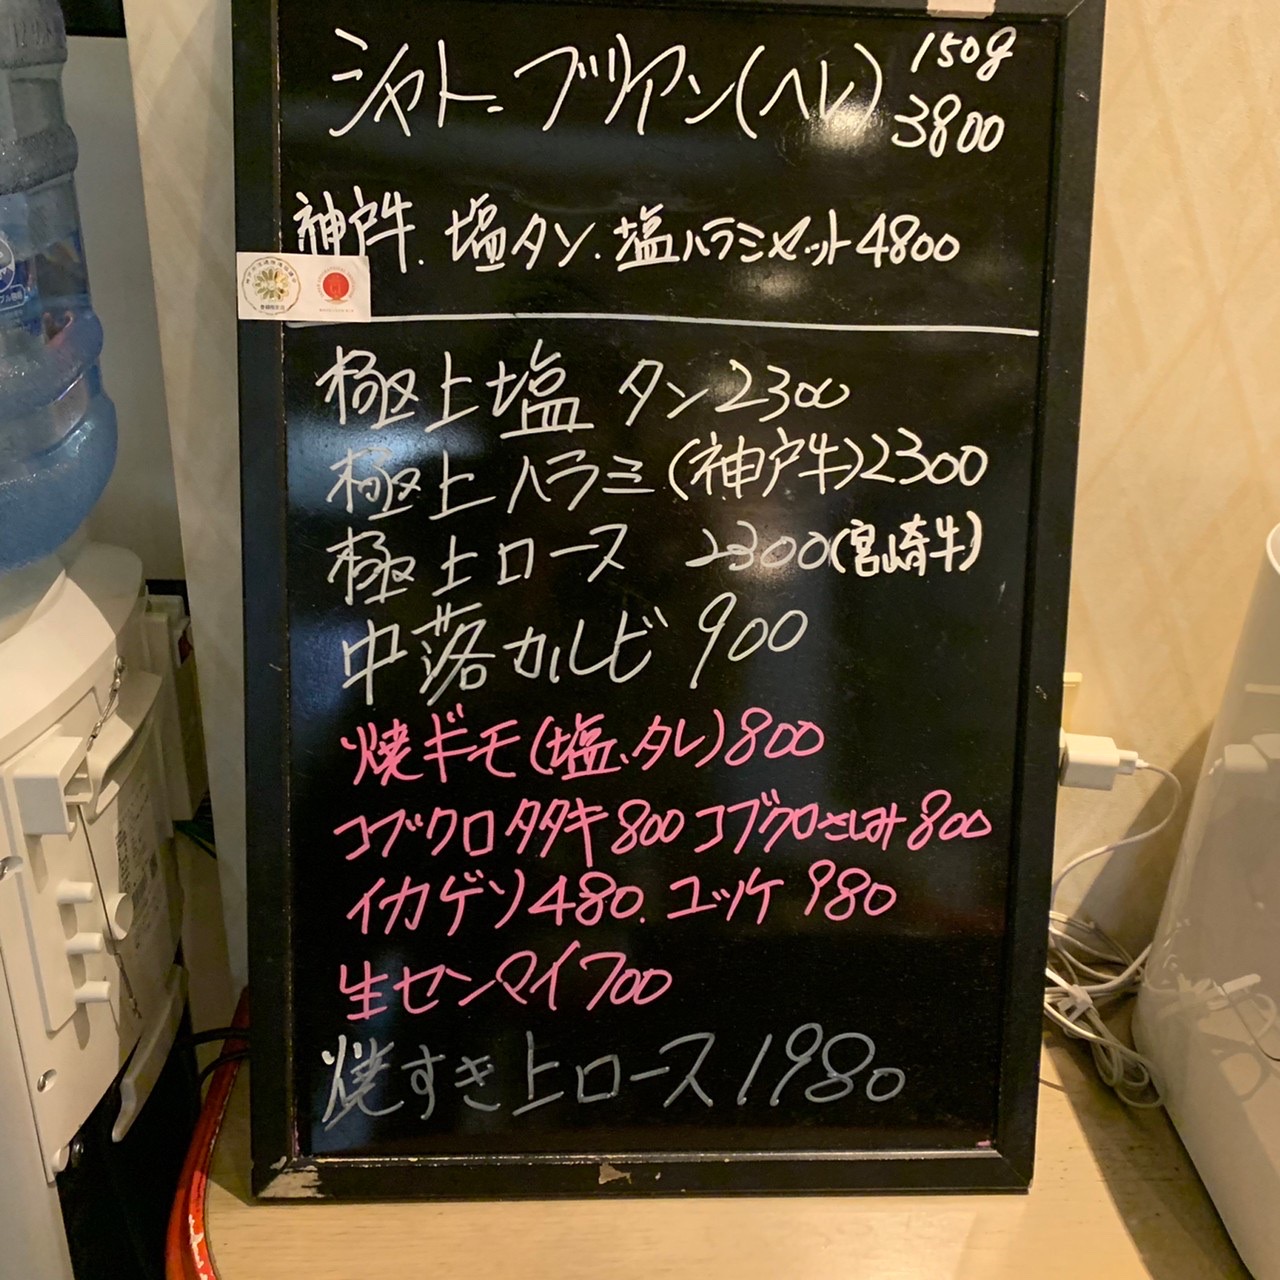 シャトーブリアン(ヘレ) 150g 3800
神戸牛.塩タン.塩ハラミセット4800
極上塩タン2300
極上ハラミ(神戸牛)2300
極上ロース 2300(宮崎牛)
中落カルビ 900
焼ギモ(塩、タレ)800
コブクロタタキ800 コブクロさしみ800
イカゲソ480. ユッケ980
生センマイ700
焼すき上ロース1980